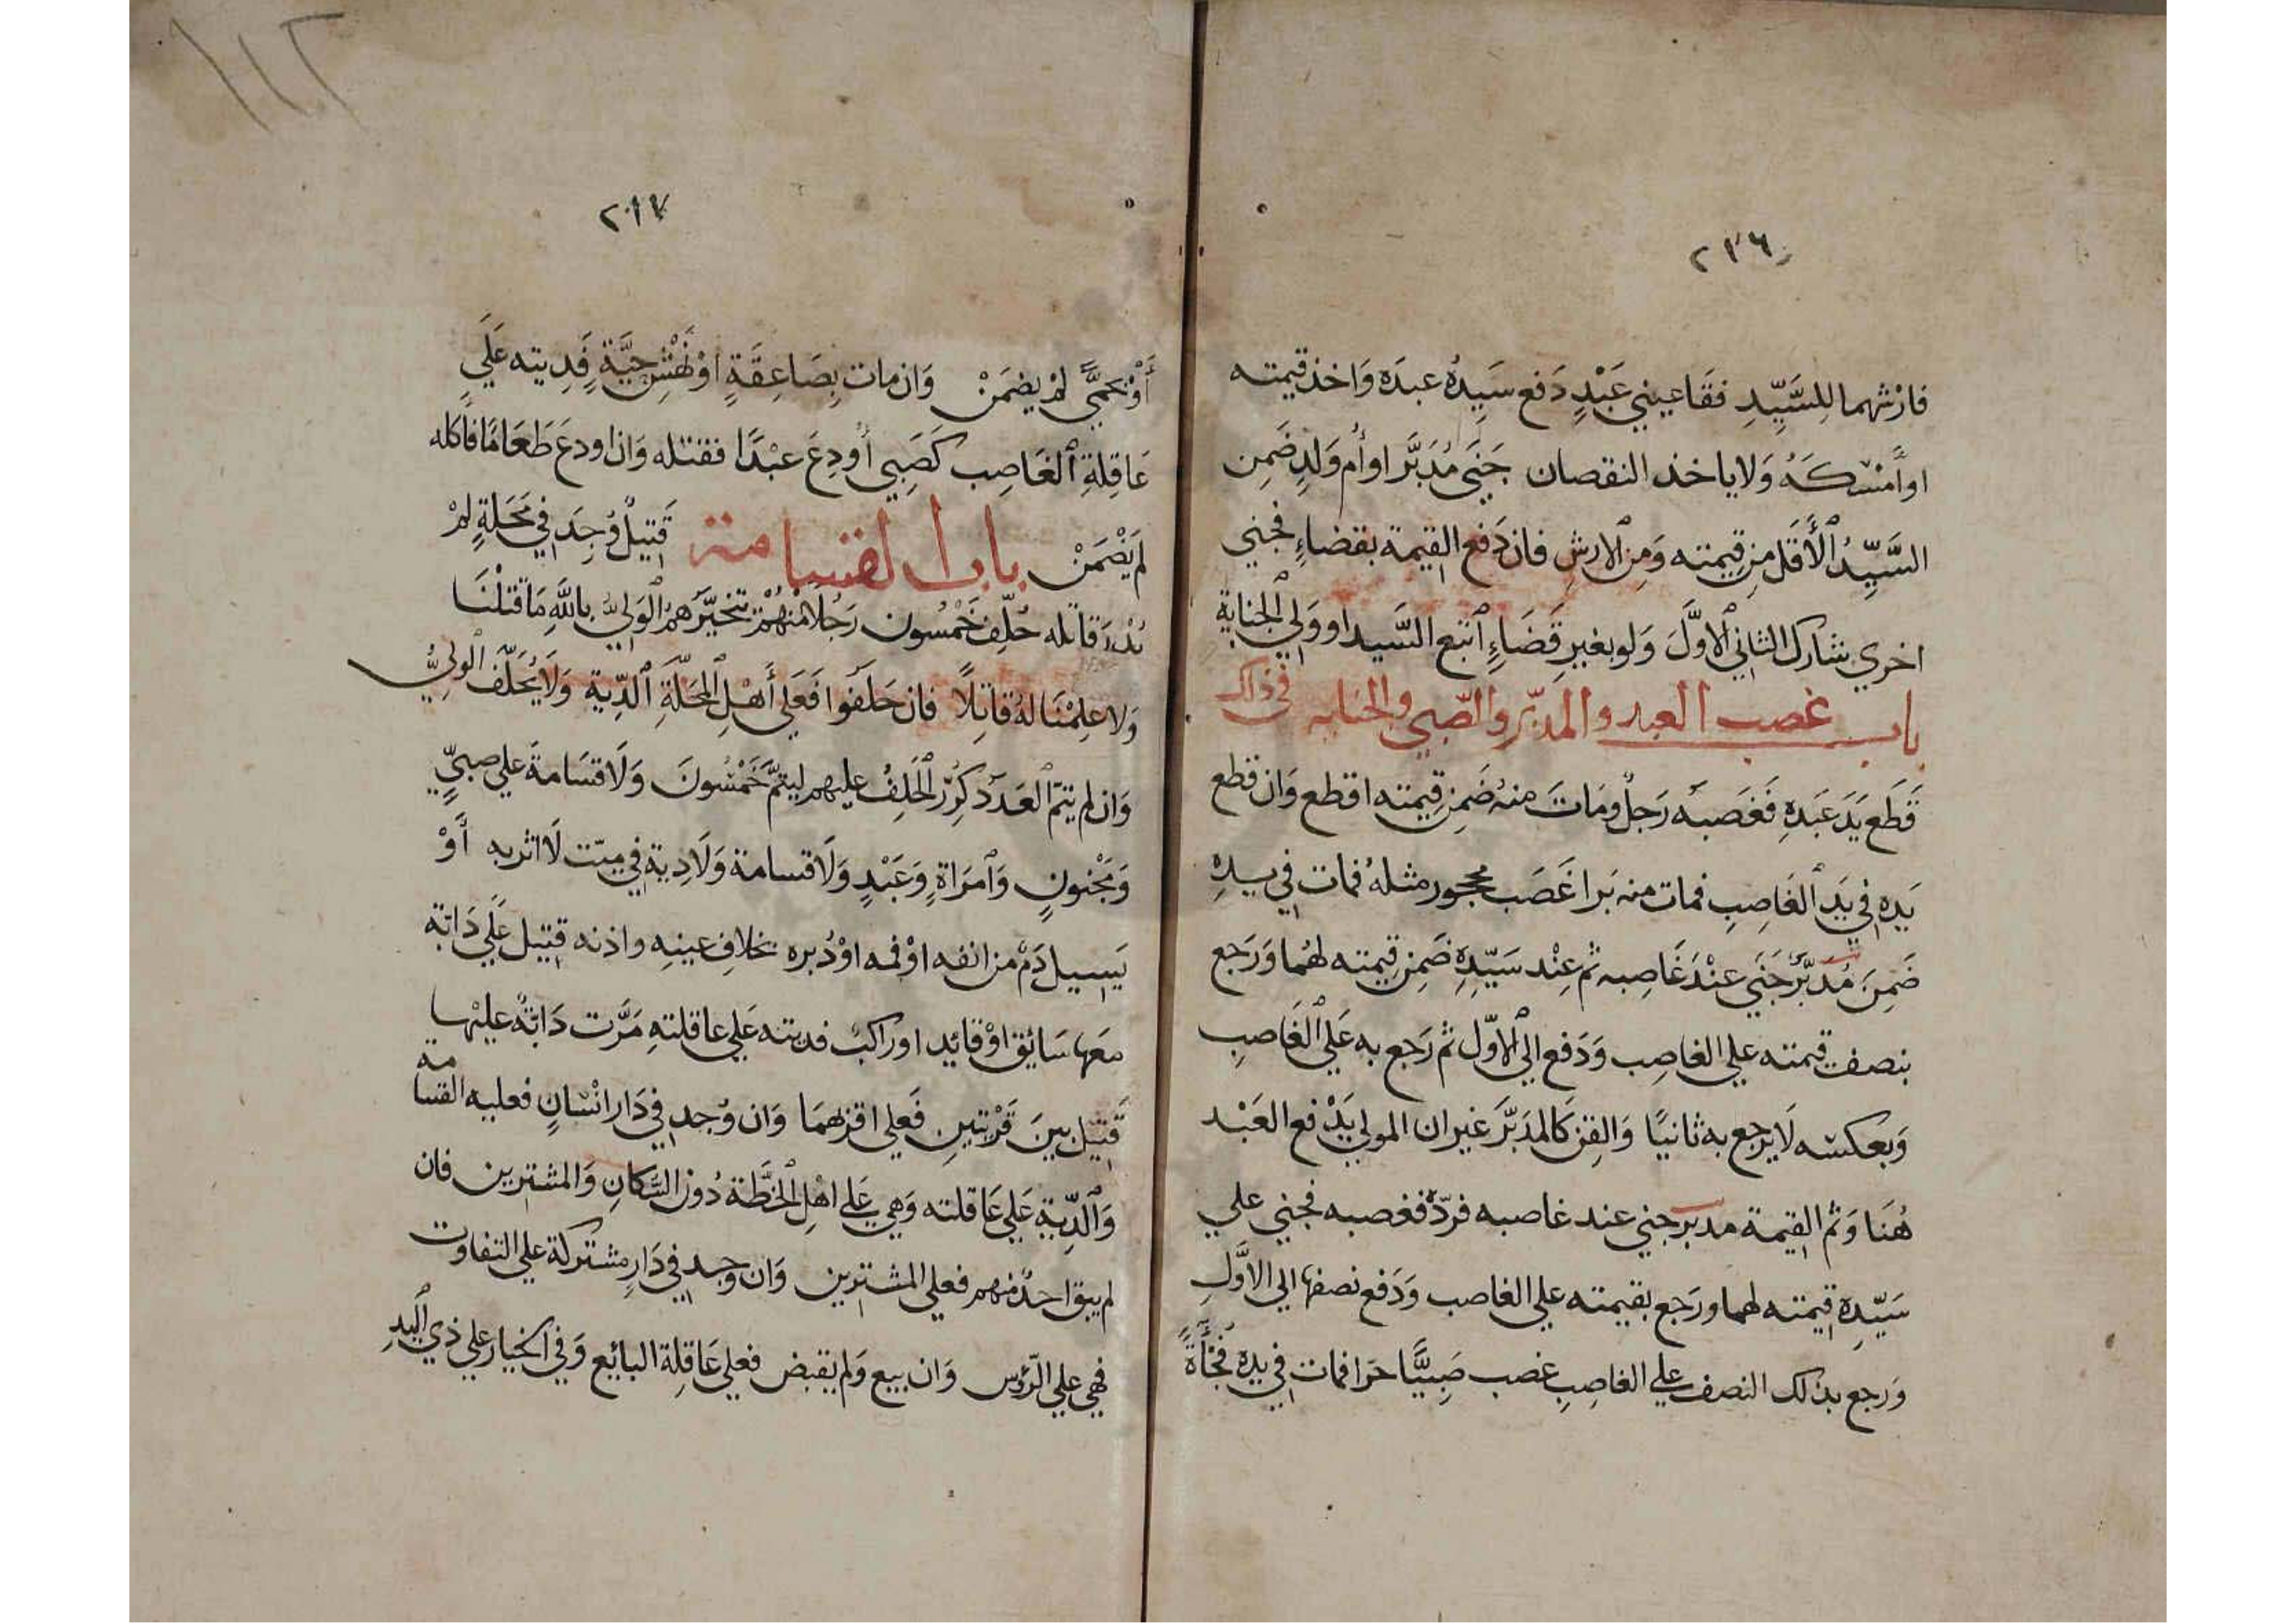 ٢١٦
فارشهما للسَّيِّدِ فقَا عيني عَبْدٍ دَفع سَيِدُهُ عبدَه وَاخذ قيمته
اوأَمْسَكَهُ وَلا ياخذ النقصان جَنَى مُدَبَّر اوأم وَلدٍ ضَمِن
السَّيِّدُ ٱلأَقَل مِن قِيمته وَمِن ٱلارشِ فان دَفع القيمة بقضاءٍ فجني
اخري شارك الثاني ٱلاوَّلَ وَلو بغيرِ قَضَاءٍ ٱتبع السَّيد او وَلي ٱلجناية
باب غصب العبد والمدبّر والصّبي والجنايه في ذلك
قَطَع يَدَ عَبدِهِ فَغَصبَه رَجلٌ وَمَاتَ منهُ ضَمِن قِيمته اقطع وَان قطع
يَده في يَدِ ٱلغَاصِبِ فمات منه بَرا غَصَب محجور مثلهُ فمات في يدِهِ
ضَمِنَ مُدَبَّر جَنَي عنْدَ غَاصِبه ثم عِنْد سَيّدِهِ ضَمِن قِيمته لهُما وَرَجع
بنصف قيمته علي الغاصِب وَدَفع الي ٱلاوّل ثم رَجع به عَلي ٱلغَاصِبِ
وَبعكسه لَا يرجع به ثانيًا وَالقِن كَالمدَبَّر غير ان المولي يَدْفع العَبْد
هُنَا وَثم القيمة مدبر جني عند غاصبه فردّه فغصبه فجني علي
سَيّدِهِ قيمته لهما ورَجع بقيمته علي الغاصب وَدَفع نصفها الي الاوَّلِ
وَرجع بذلك النصف علي الغاصِبِ غصب صَبِيًّا حرا فمات في يده فُجْأَةً
١١٢
٢١٧
أَوْ بحمًّي لمْ يضمَنْ وَان مات بِصَاعِقَةٍ اوْ نَهْشِ حيَّةٍ فَدِيته عَلَي
عَاقِلَةِ ٱلغَاصِب كَصَبِي أُودِعَ عبْدًا فقتله وَان اودعَ طَعَامًا فأكله
لم يَضْمَنْ باب القسامة قَتيلٌ وُجِدَ في مَحَلةٍ لمْ
يُدْرَ قاتله حُلّف خَمْسُون رَجُلًا مْنهُمْ يَتخيَّرهمُ ٱلوَليُّ باللَّهِ مَا قتلْنَا
وَلا عَلِمْنَا لهُ قاتِلًا فان حَلَفُوا فَعَلي أَهْلِ ٱلمحَلّةِ ٱلدِّية وَلَا يُحَلَّف ٱلوليُّ
وَان لم يتمّ ٱلعَدَد كرّر ٱلحَلِفُ عليهم ليتمَّ خَمْسُونَ وَلَا قسَامةَ علي صبيٍّ
وَمَجْنونٍ وَٱمرَاةٍ وَعَبْدٍ وَلَا قسامة وَلَا دِية في ميّت لَا اثر به أَوْ
يَسِيل دَمٌ من انفه اوْ فمه اوْ دُبره بخلافِ عينِه واذنه قتيل عَلَي دَابّة
معَها سَائق اوْ قائِد اوراكبٌ فديته عَلي عاقلتهِ مَرَّت دَابّةٌ عليْها
قَتيْل بينَ قرْيتينِ فَعلي اقربهمَا وَان وُجد في دَار انْسَانٍ فعليه القسا
مة
وَٱلدِّية عَلي عَاقلته وَهي عَلي اهْلِ ٱلخطَّة دُون السَّكانِ وَالمشترين فان
لم يبق احدٌ منهم فعلي المشترين وَان وجد في دَارٍ مشتركة علي التفاوت
فهي علي الرّؤس وَان بيع وَلم يقبض فعلي عَاقِلة البائع وَفي الخيار علي ذي ٱليدِ